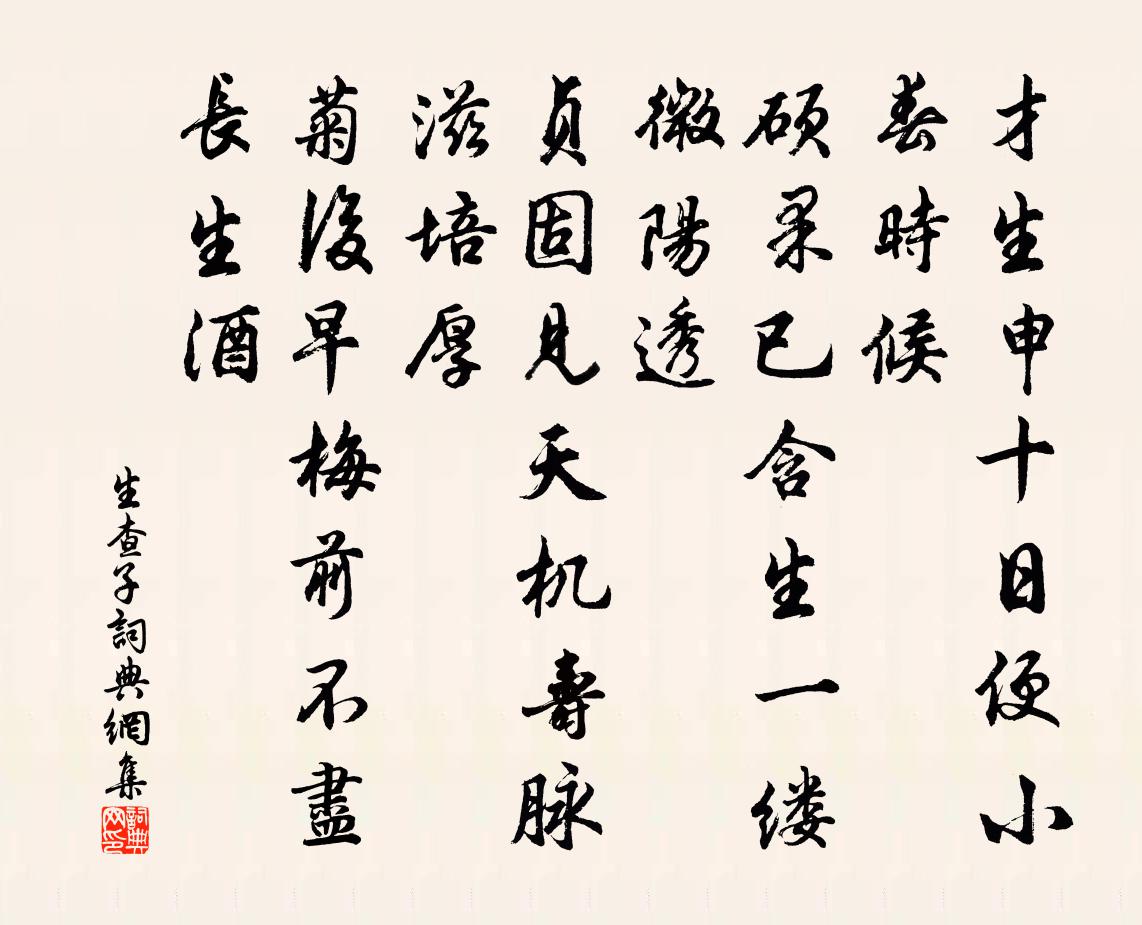 才生申十日便小
春時候
硕果已含生一缕
微陽透
貞固見天机壽脉
滋培厚
菊後早梅前不盡
長生酒
生查子詞典網集
詞典网印